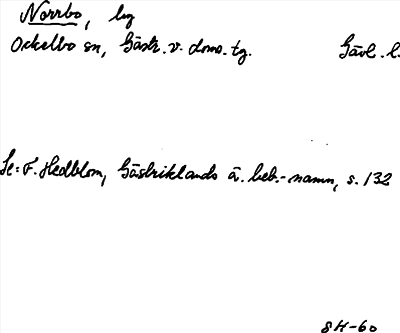 Norrbo, by
Ockelbo sn, Gästr. v. doms. tg. Gävl. l.
Se: F. Hedblom, Gästriklands ä. beb.-namn, s. 132
8H-60